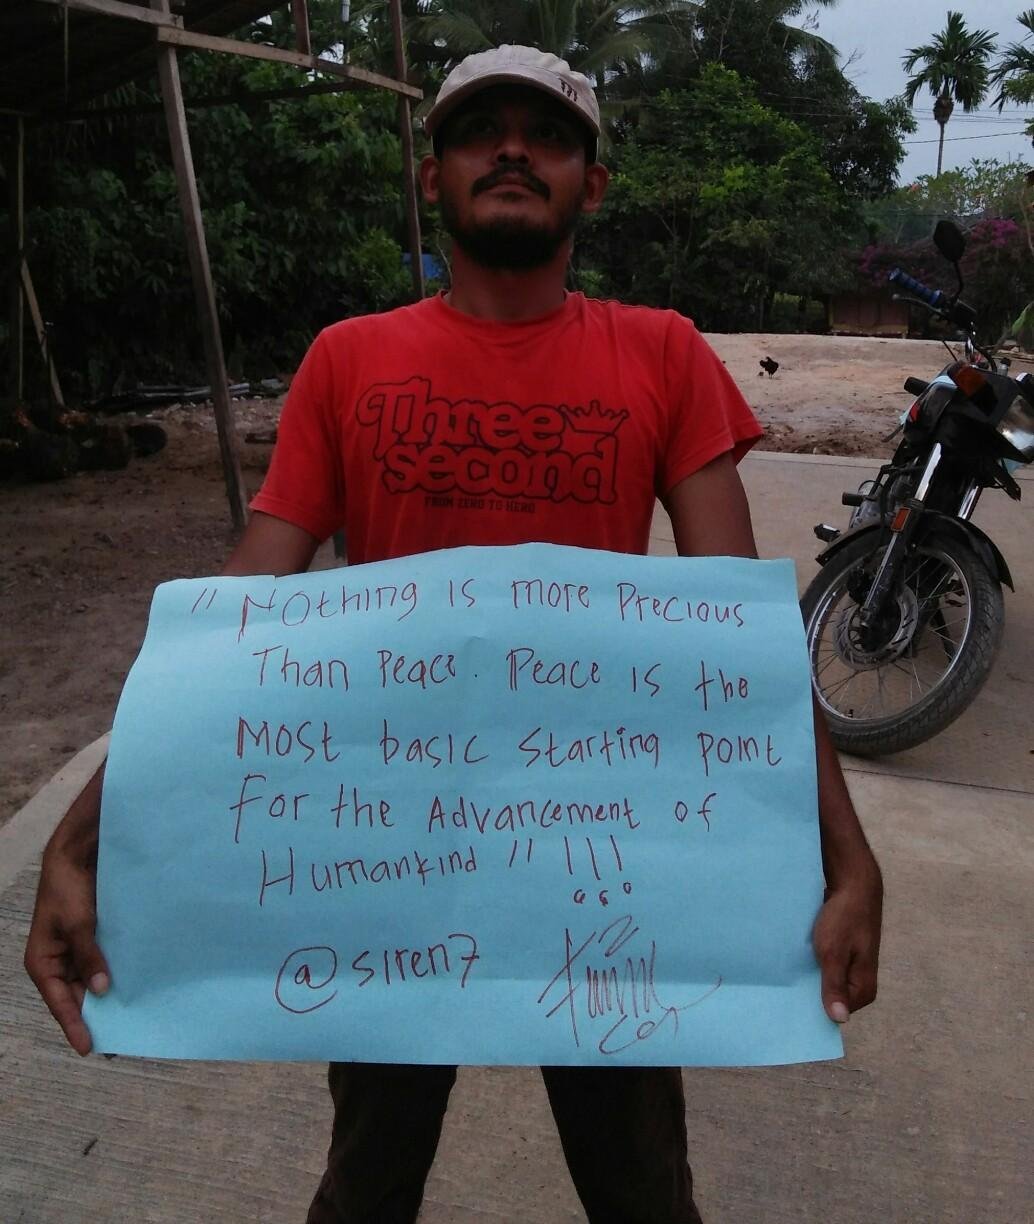 Three
second
FROM ZERO TO HERO
" Nothing is more Precious
Than Peace. Peace is the
Most basic Starting Point
For the Advancement of
Humankind " !!!
@siren7